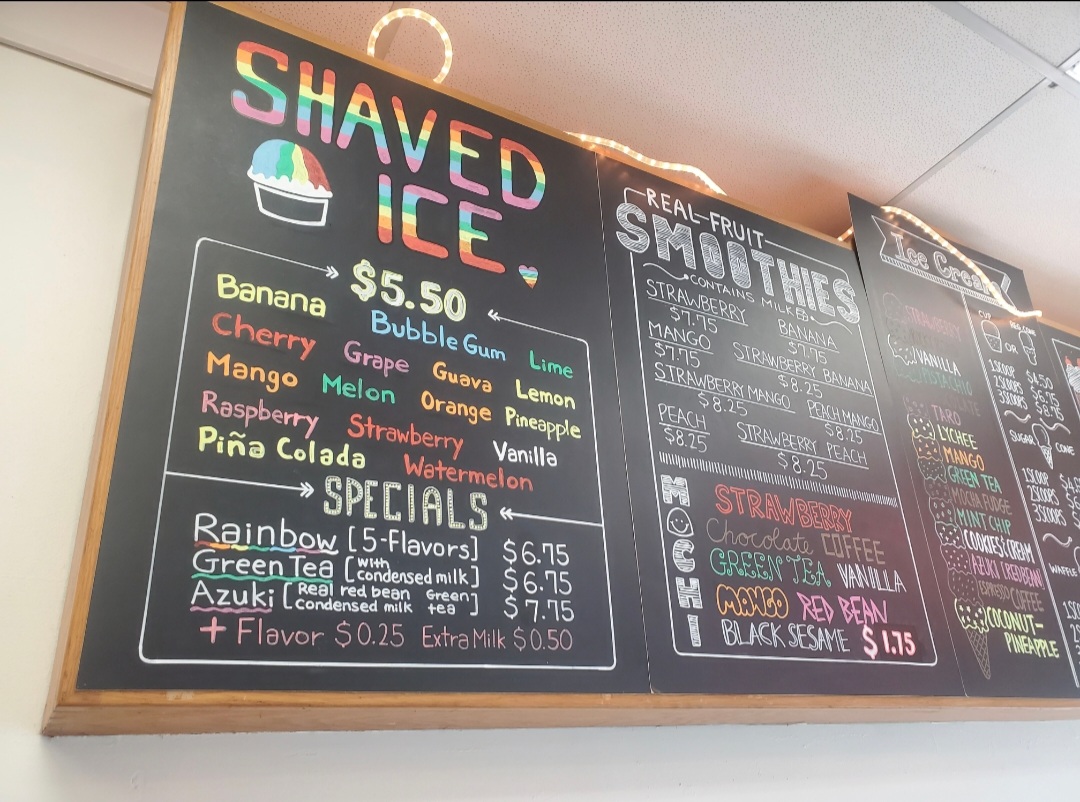 SHAVED
ICE
$5.50
Banana
Bubble Gum
Lime
Cherry
Grape
Guava
Lemon
Mango
Melon
Orange
Pineapple
Raspberry
Strawberry
Vanilla
Piña Colada
Watermelon
SPECIALS
Rainbow [5-Flavors] $6.75
Green Tea [with condensed milk] $6.75
Azuki [Real red bean Green
condensed milk tea] $7.75
+ Flavor $0.25 Extra Milk $0.50
REAL-FRUIT
SMOOTHIES
CONTAINS MILK
STRAWBERRY
$7.75
BANANA
$7.75
MANGO
$7.75
STRAWBERRY BANANA
$8.25
STRAWBERRY MANGO
$8.25
PEACH MANGO
$8.25
PEACH
$8.25
STRAWBERRY PEACH
$8.25
MOCHI
STRAWBERRY
Chocolate COFFEE
GREEN TEA VANILLA
MANGO RED BEAN
BLACK SESAME $1.75
Ice Cream
STRAWBERRY
VANILLA
TARO
LYCHEE
MANGO
GREEN TEA
MOCHA FUDGE
MINT CHIP
COOKIES & CREAM
AZUKI (RED BEAN)
ESPRESSO COFFEE
COCONUT-
PINEAPPLE
CUP
OR
1SCOOP $4.50
2SCOOPS
3SCOOPS
SUGAR CONE
1SCOOP
2SCOOPS
3SCOOPS
WAFFLE